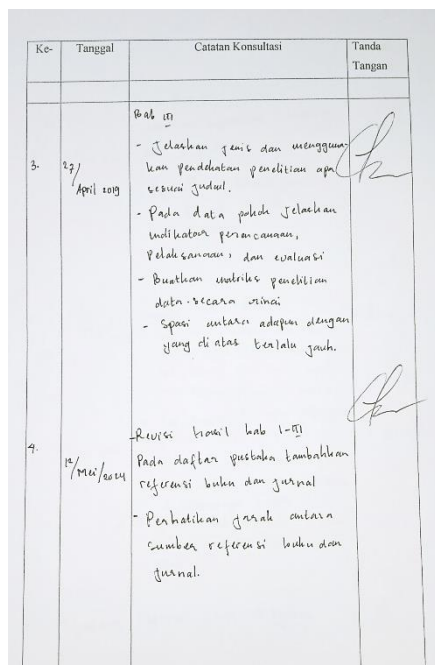 Ke- Tanggal Catatan Konsultasi Tanda Tangan
Bab III
3. 27/April 2019
- Jelaskan jenis dan menggunakan pendekatan penelitian apa
sesuai judul.
- Pada data pokok jelaskan
indikator perencanaan,
pelaksanaan, dan evaluasi
- Buatkan matriks penelitian
data secara rinci
- Spasi antara adapun dengan
yang di atas terlalu jauh.
4. 12/Mei/2024
- Revisi hasil bab I-III
Pada daftar pustaka tambahkan
referensi buku dan jurnal
- Perhatikan jarak antara
sumber referensi buku dan
jurnal.